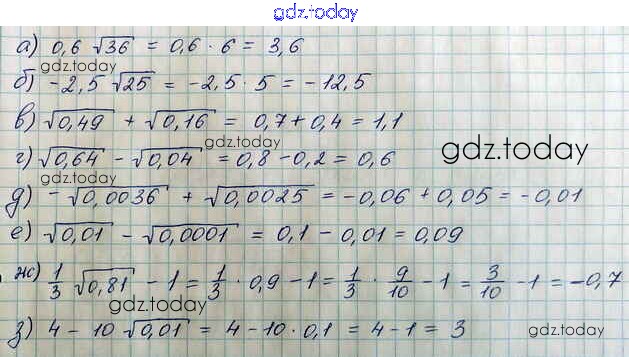 gdz.today
а) 0,6 √36 = 0,6 · 6 = 3,6
gdz.today
б) -2,5 √25 = -2,5 · 5 = -12,5
в) √0,49 + √0,16 = 0,7 + 0,4 = 1,1
gdz.today
г) √0,64 - √0,04 = 0,8 - 0,2 = 0,6
gdz.today
gdz.today
д) -√0,0036 + √0,0025 = -0,06 + 0,05 = -0,01
е) √0,01 - √0,0001 = 0,1 - 0,01 = 0,09
ж) 1/3 √0,81 - 1 = 1/3 · 0,9 - 1 = 1/3 · 9/10 - 1 = 3/10 - 1 = -0,7
gdz.today
з) 4 - 10 √0,01 = 4 - 10 · 0,1 = 4 - 1 = 3
gdz.today